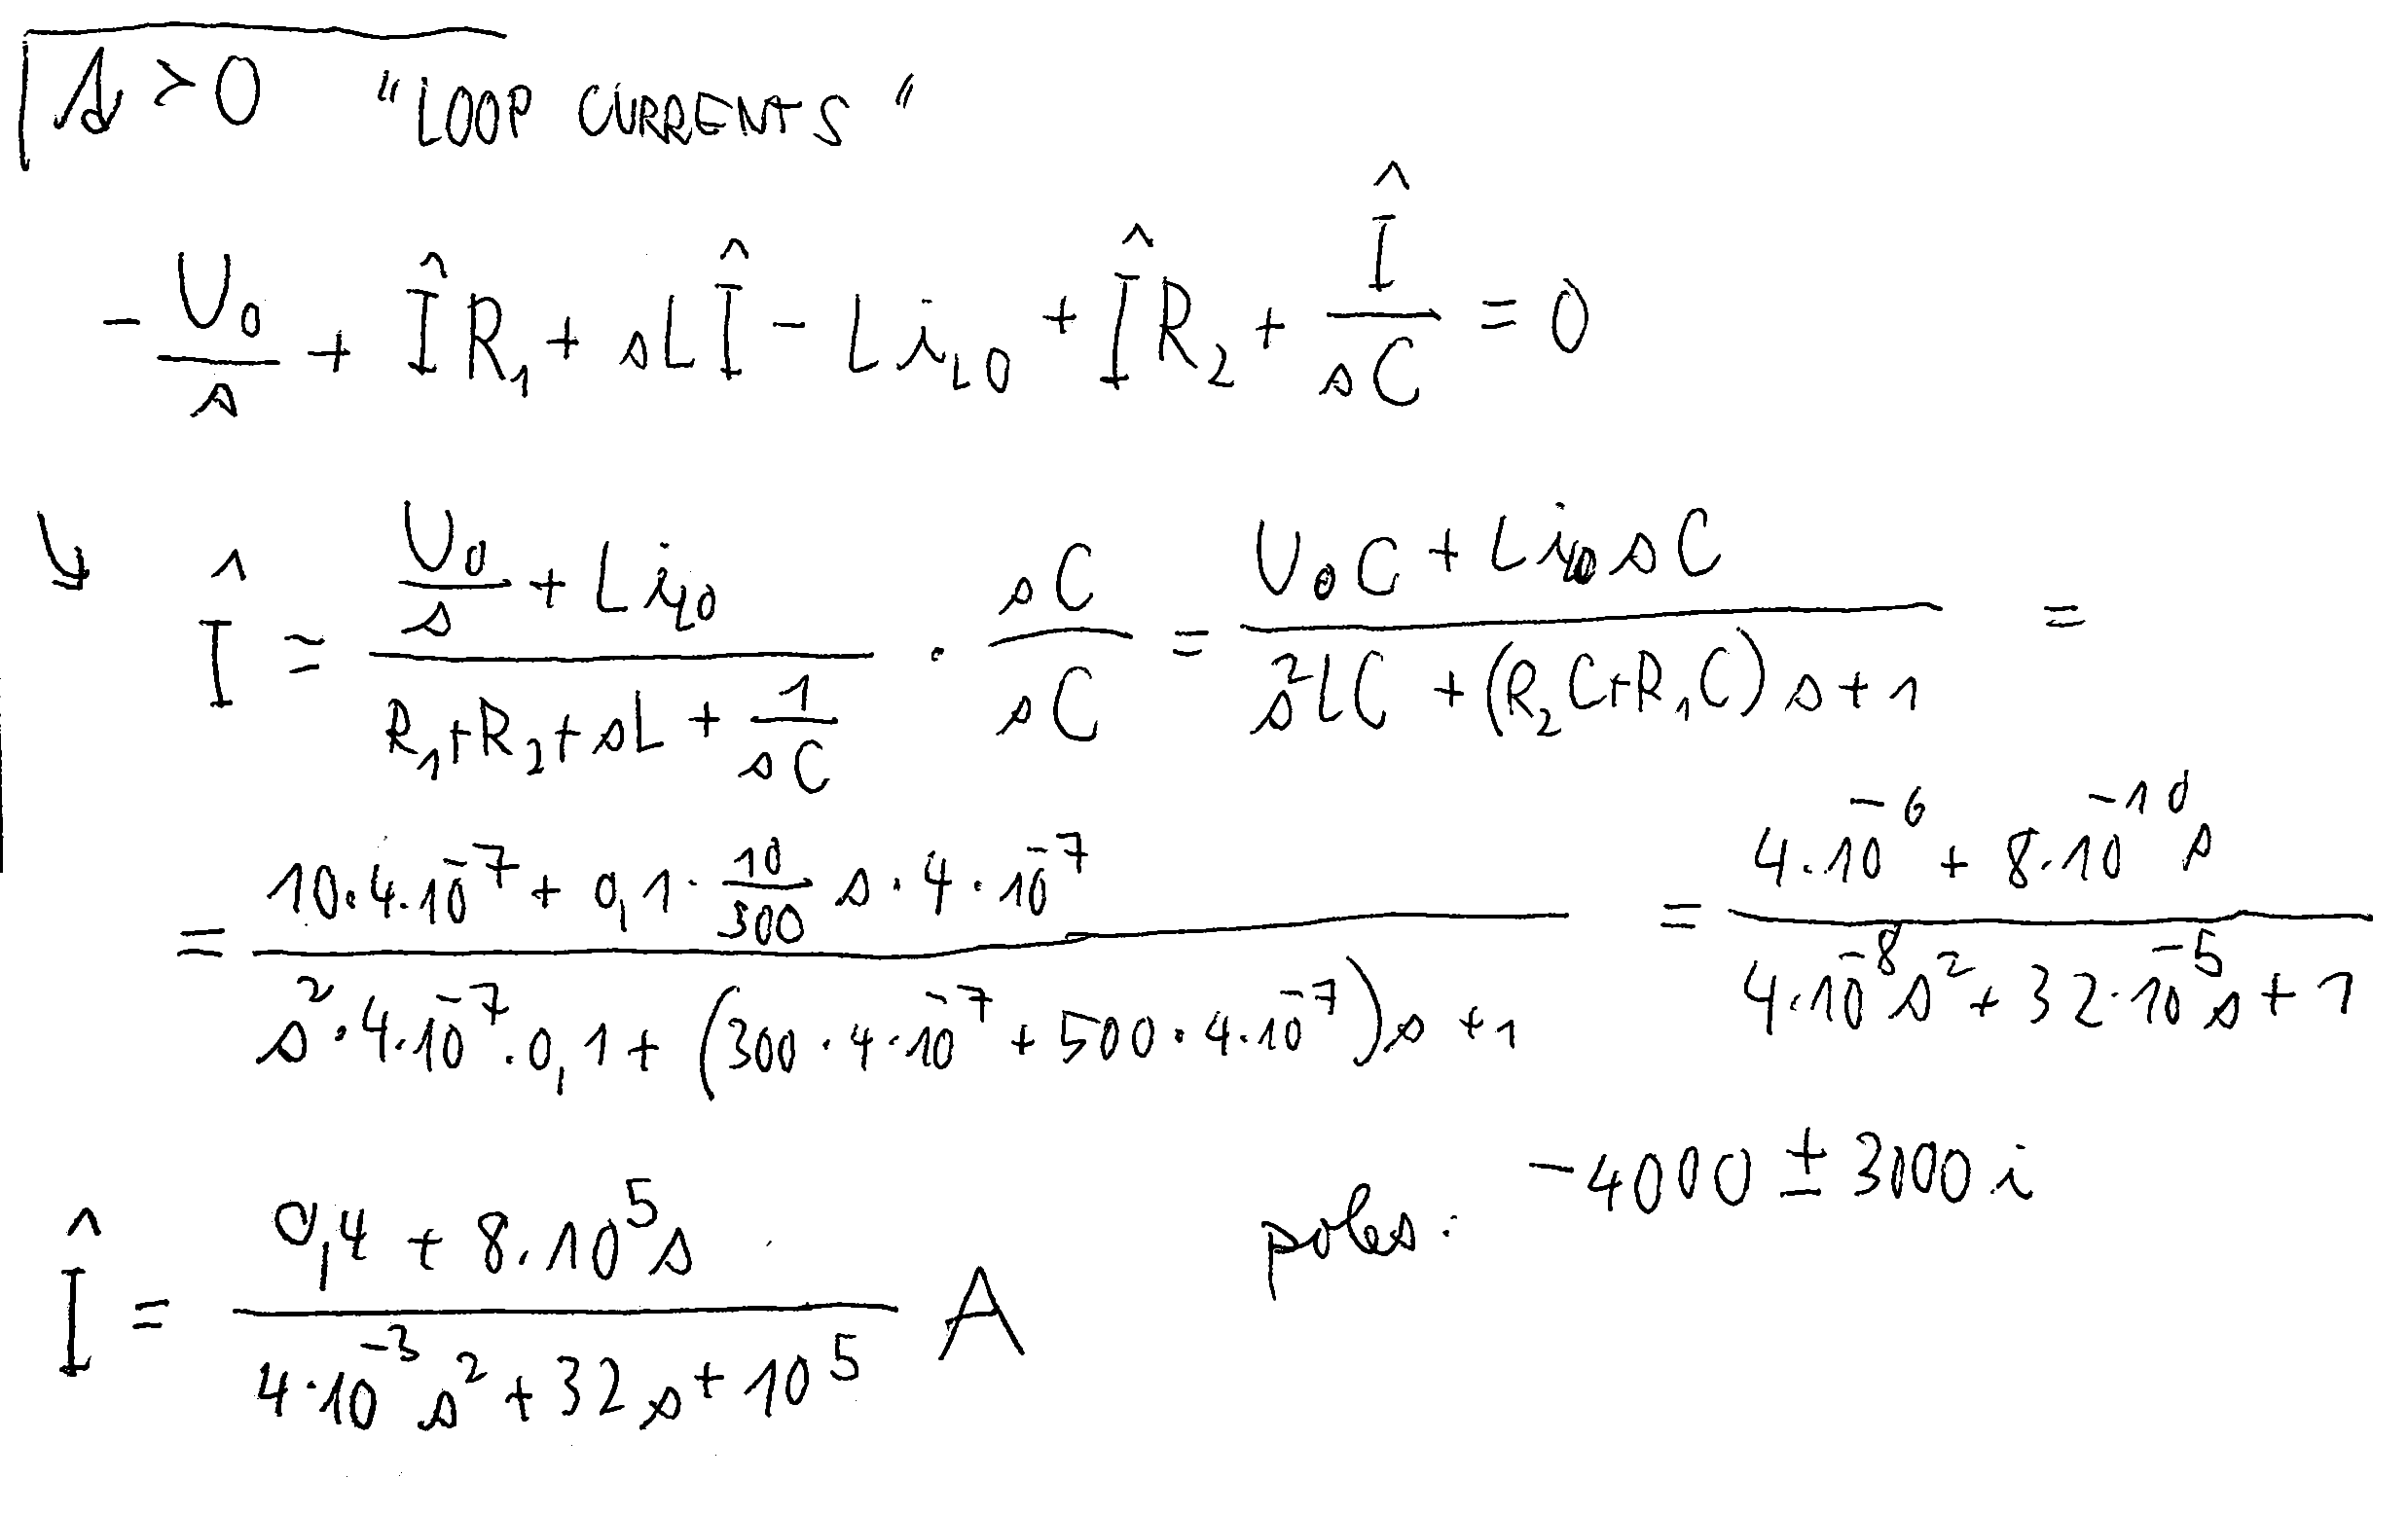 s > 0 "LOOP CURRENTS"
- U₀/s + Î R₁ + sLÎ - L i_L0 + Î R₂ + Î/(sC) = 0
↳ Î = (U₀/s + L i_L0)/(R₁+R₂+sL + 1/(sC)) · sC/sC = (U₀C + L i_L0 sC)/(s²LC + (R₂C+R₁C)s+1) =
= (10·4·10⁻⁷ + 0,1·10/300 s·4·10⁻⁷)/(s²·4·10⁻⁷·0,1 + (300·4·10⁻⁷ + 500·4·10⁻⁷)s +1) = (4·10⁻⁶ + 8·10⁻¹⁰s)/(4·10⁻⁸s² + 32·10⁻⁵s + 1)
Î = (0,4 + 8·10⁵s)/(4·10⁻³s² + 32s + 10⁵) A poles: -4000 ± 3000i